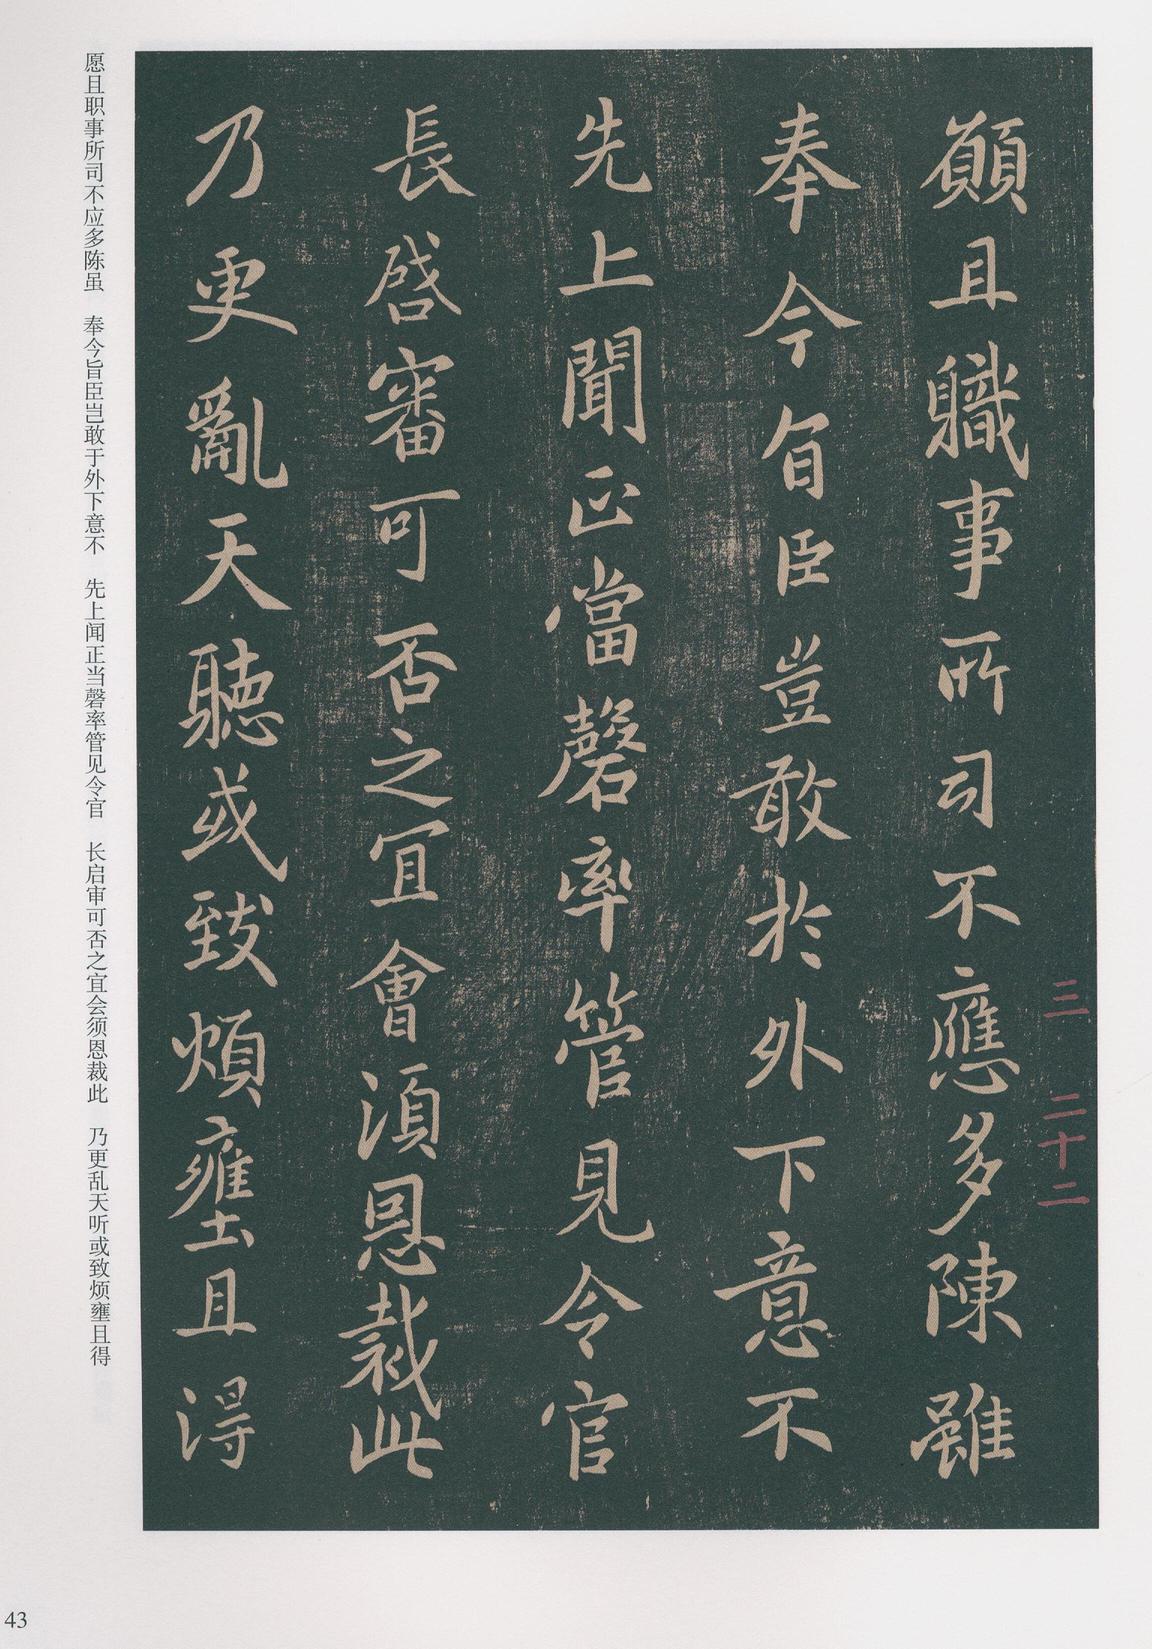 願且職事所司不應多陳雖
奉今旨臣豈敢於外下意不
先上聞正當罄率管見令官
長啓審可否之宜會須恩裁此
乃更亂天聽或致煩壅且得
三 二十二
愿且职事所司不应多陈虽 奉今旨臣岂敢于外下意不 先上闻正当罄率管见令官 长启审可否之宜会须恩裁此 乃更乱天听或致烦壅且得
43